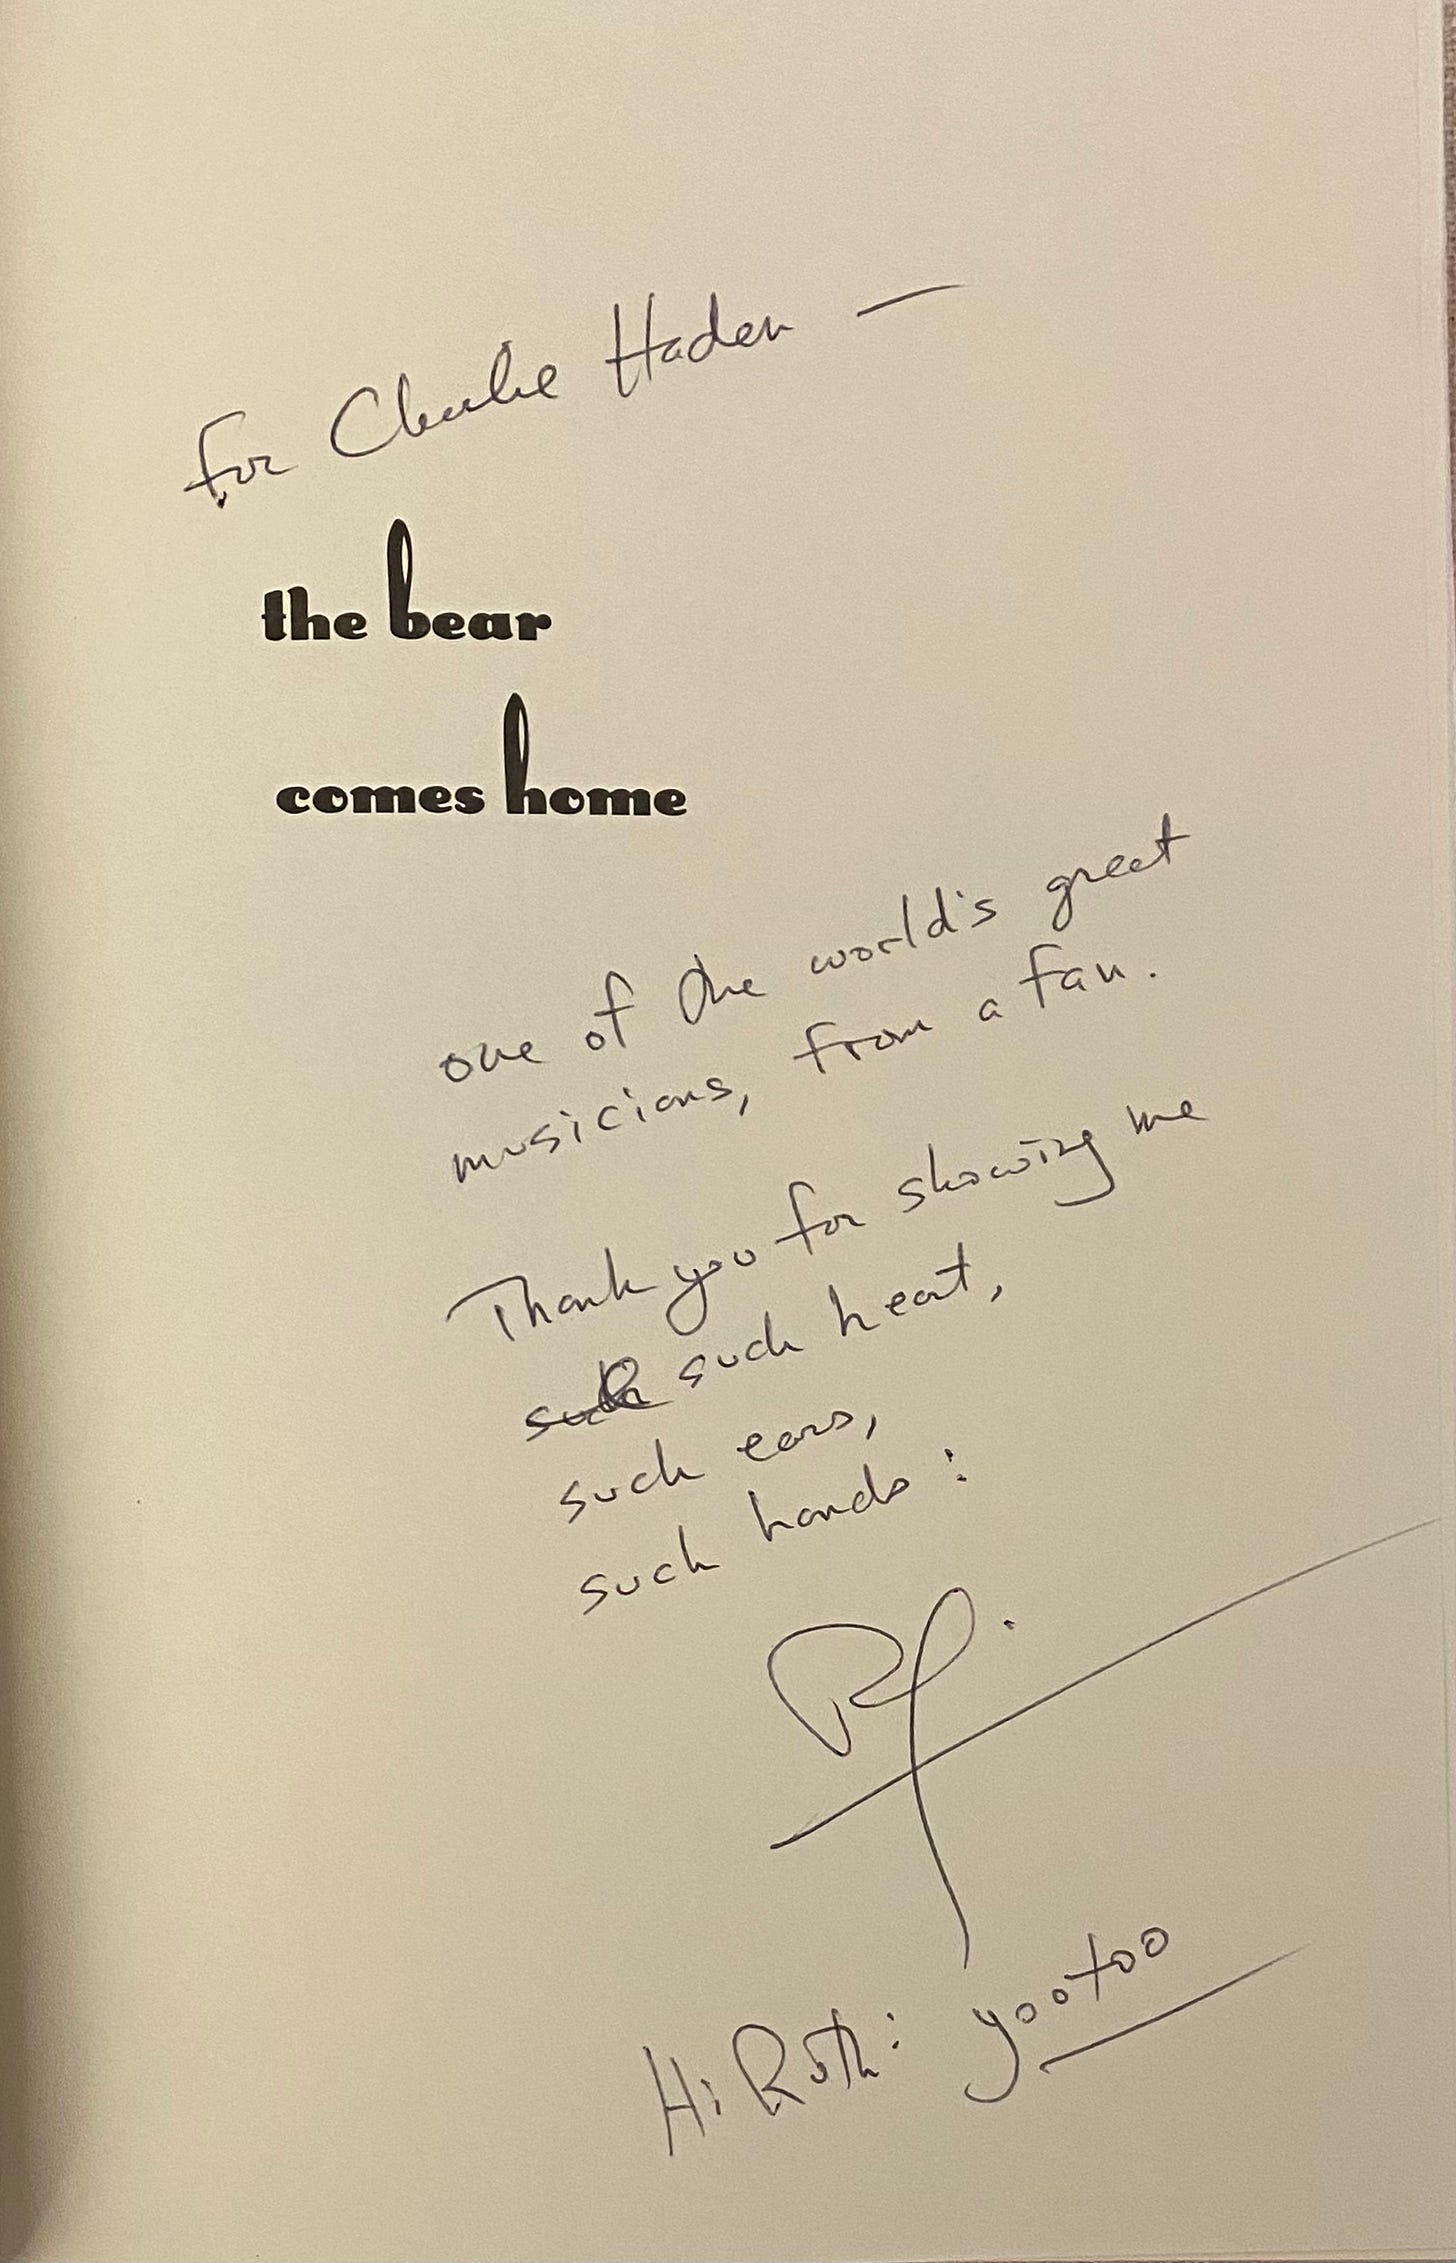 For Charlie Haden —
the bear
comes home
one of the world's great
musicians, from a fan.
Thank you for showing me
such heart,
such ears,
such hands:
Hi Ruth: yootoo